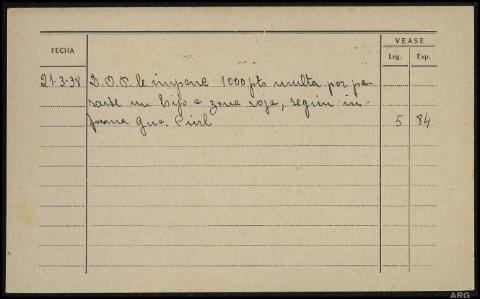 VEASE
FECHA
Leg. Exp.
21-3-38 D.O.P. le impone 1000 pts multa por pa-
sarse un hijo a zona roja, según in-
forma Gua. Civil 5 84
ARG